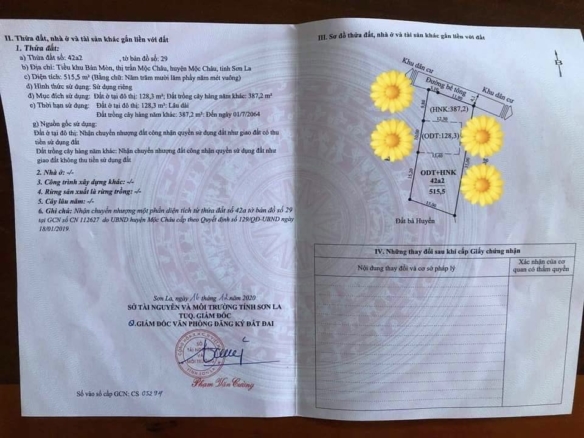 II. Thửa đất, nhà ở và tài sản khác gắn liền với đất
1. Thửa đất:
a) Thửa đất số: 42a2 , tờ bản đồ số: 29
b) Địa chỉ: Tiểu khu Bản Mòn, thị trấn Mộc Châu, huyện Mộc Châu, tỉnh Sơn La
c) Diện tích: 515,5 m² (Bằng chữ: Năm trăm mười lăm phẩy năm mét vuông)
d) Hình thức sử dụng: Sử dụng riêng
đ) Mục đích sử dụng: Đất ở tại đô thị: 128,3 m²; Đất trồng cây hàng năm khác: 387,2 m²
e) Thời hạn sử dụng: Đất ở tại đô thị: 128,3 m²: Lâu dài
Đất trồng cây hàng năm khác: 387,2 m²: Đến 01/7/2064
g) Nguồn gốc sử dụng:
Đất ở tại đô thị: Nhận chuyển nhượng đất công nhận quyền sử dụng đất như giao đất có thu
tiền sử dụng đất
Đất trồng cây hàng năm khác: Nhận chuyển nhượng đất công nhận quyền sử dụng đất như
giao đất không thu tiền sử dụng đất
2. Nhà ở: -/-
3. Công trình xây dựng khác: -/-
4. Rừng sản xuất là rừng trồng: -/-
5. Cây lâu năm: -/-
6. Ghi chú: Nhận chuyển nhượng một phần diện tích từ thửa đất số 42a tờ bản đồ số 29
tại GCN số CN 112627 do UBND huyện Mộc Châu cấp theo Quyết định số 129/QĐ-UBND ngày
18/01/2019.
Sơn La, ngày 16 tháng 12 năm 2020
SỞ TÀI NGUYÊN VÀ MÔI TRƯỜNG TỈNH SƠN LA
TUQ. GIÁM ĐỐC
GIÁM ĐỐC VĂN PHÒNG ĐĂNG KÝ ĐẤT ĐAI
Phạm Văn Cường
Số vào sổ cấp GCN: CS
III. Sơ đồ thửa đất, nhà ở và tài sản khác gắn liền với đất
Khu dân cư
Đường bê tông
Khu dân cư
(HNK:387,2)
(ODT:128,3)
ODT+HNK
42a2
515,5
Đất bà Huyền
IV. Những thay đổi sau khi cấp Giấy chứng nhận
Nội dung thay đổi và cơ sở pháp lý
Xác nhận của cơ
quan có thẩm quyền